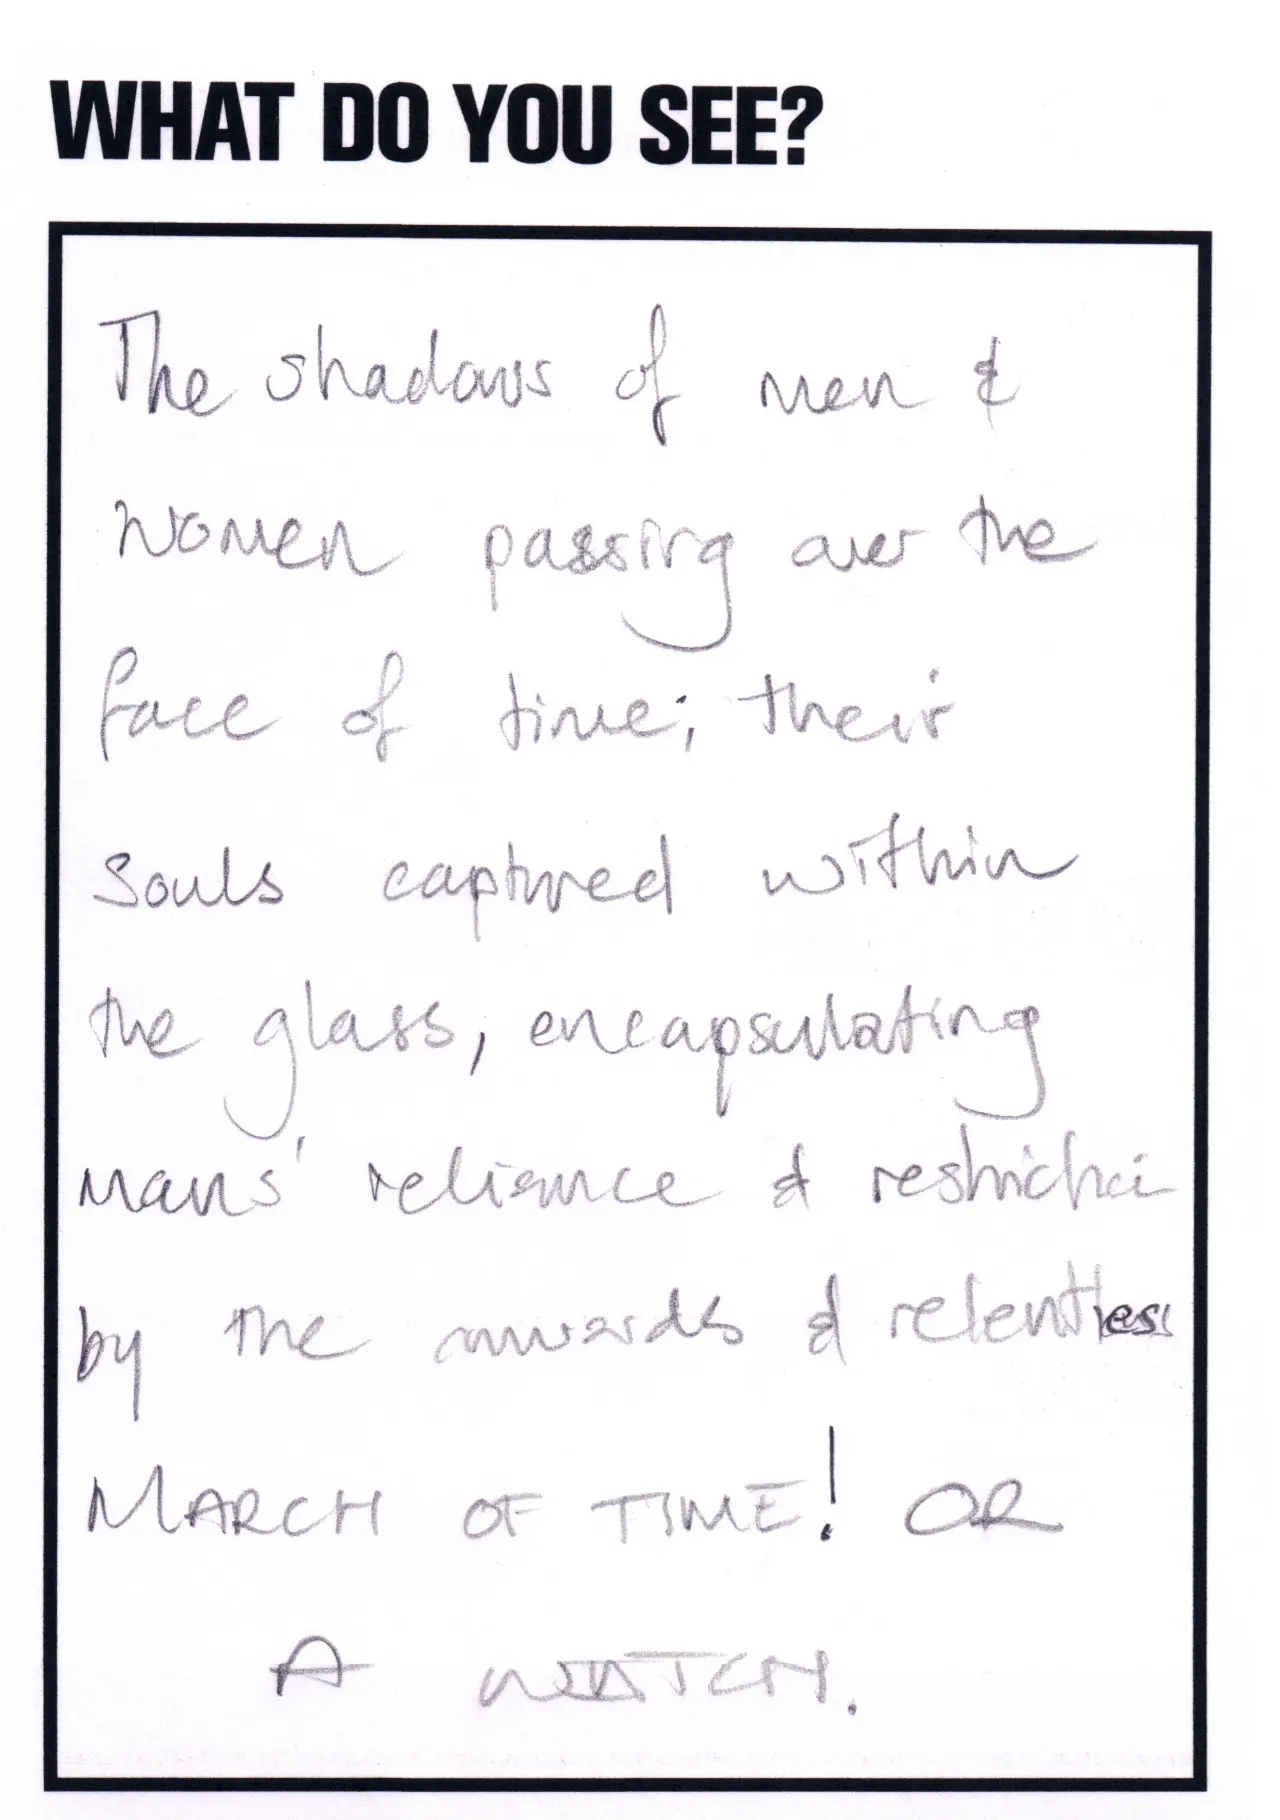 WHAT DO YOU SEE?
The shadows of men &
women passing over the
face of time; their
souls captured within
the glass, encapsulating
mans' reliance & restriction
by the onwards & relentless
MARCH OF TIME! OR
A WATCH.